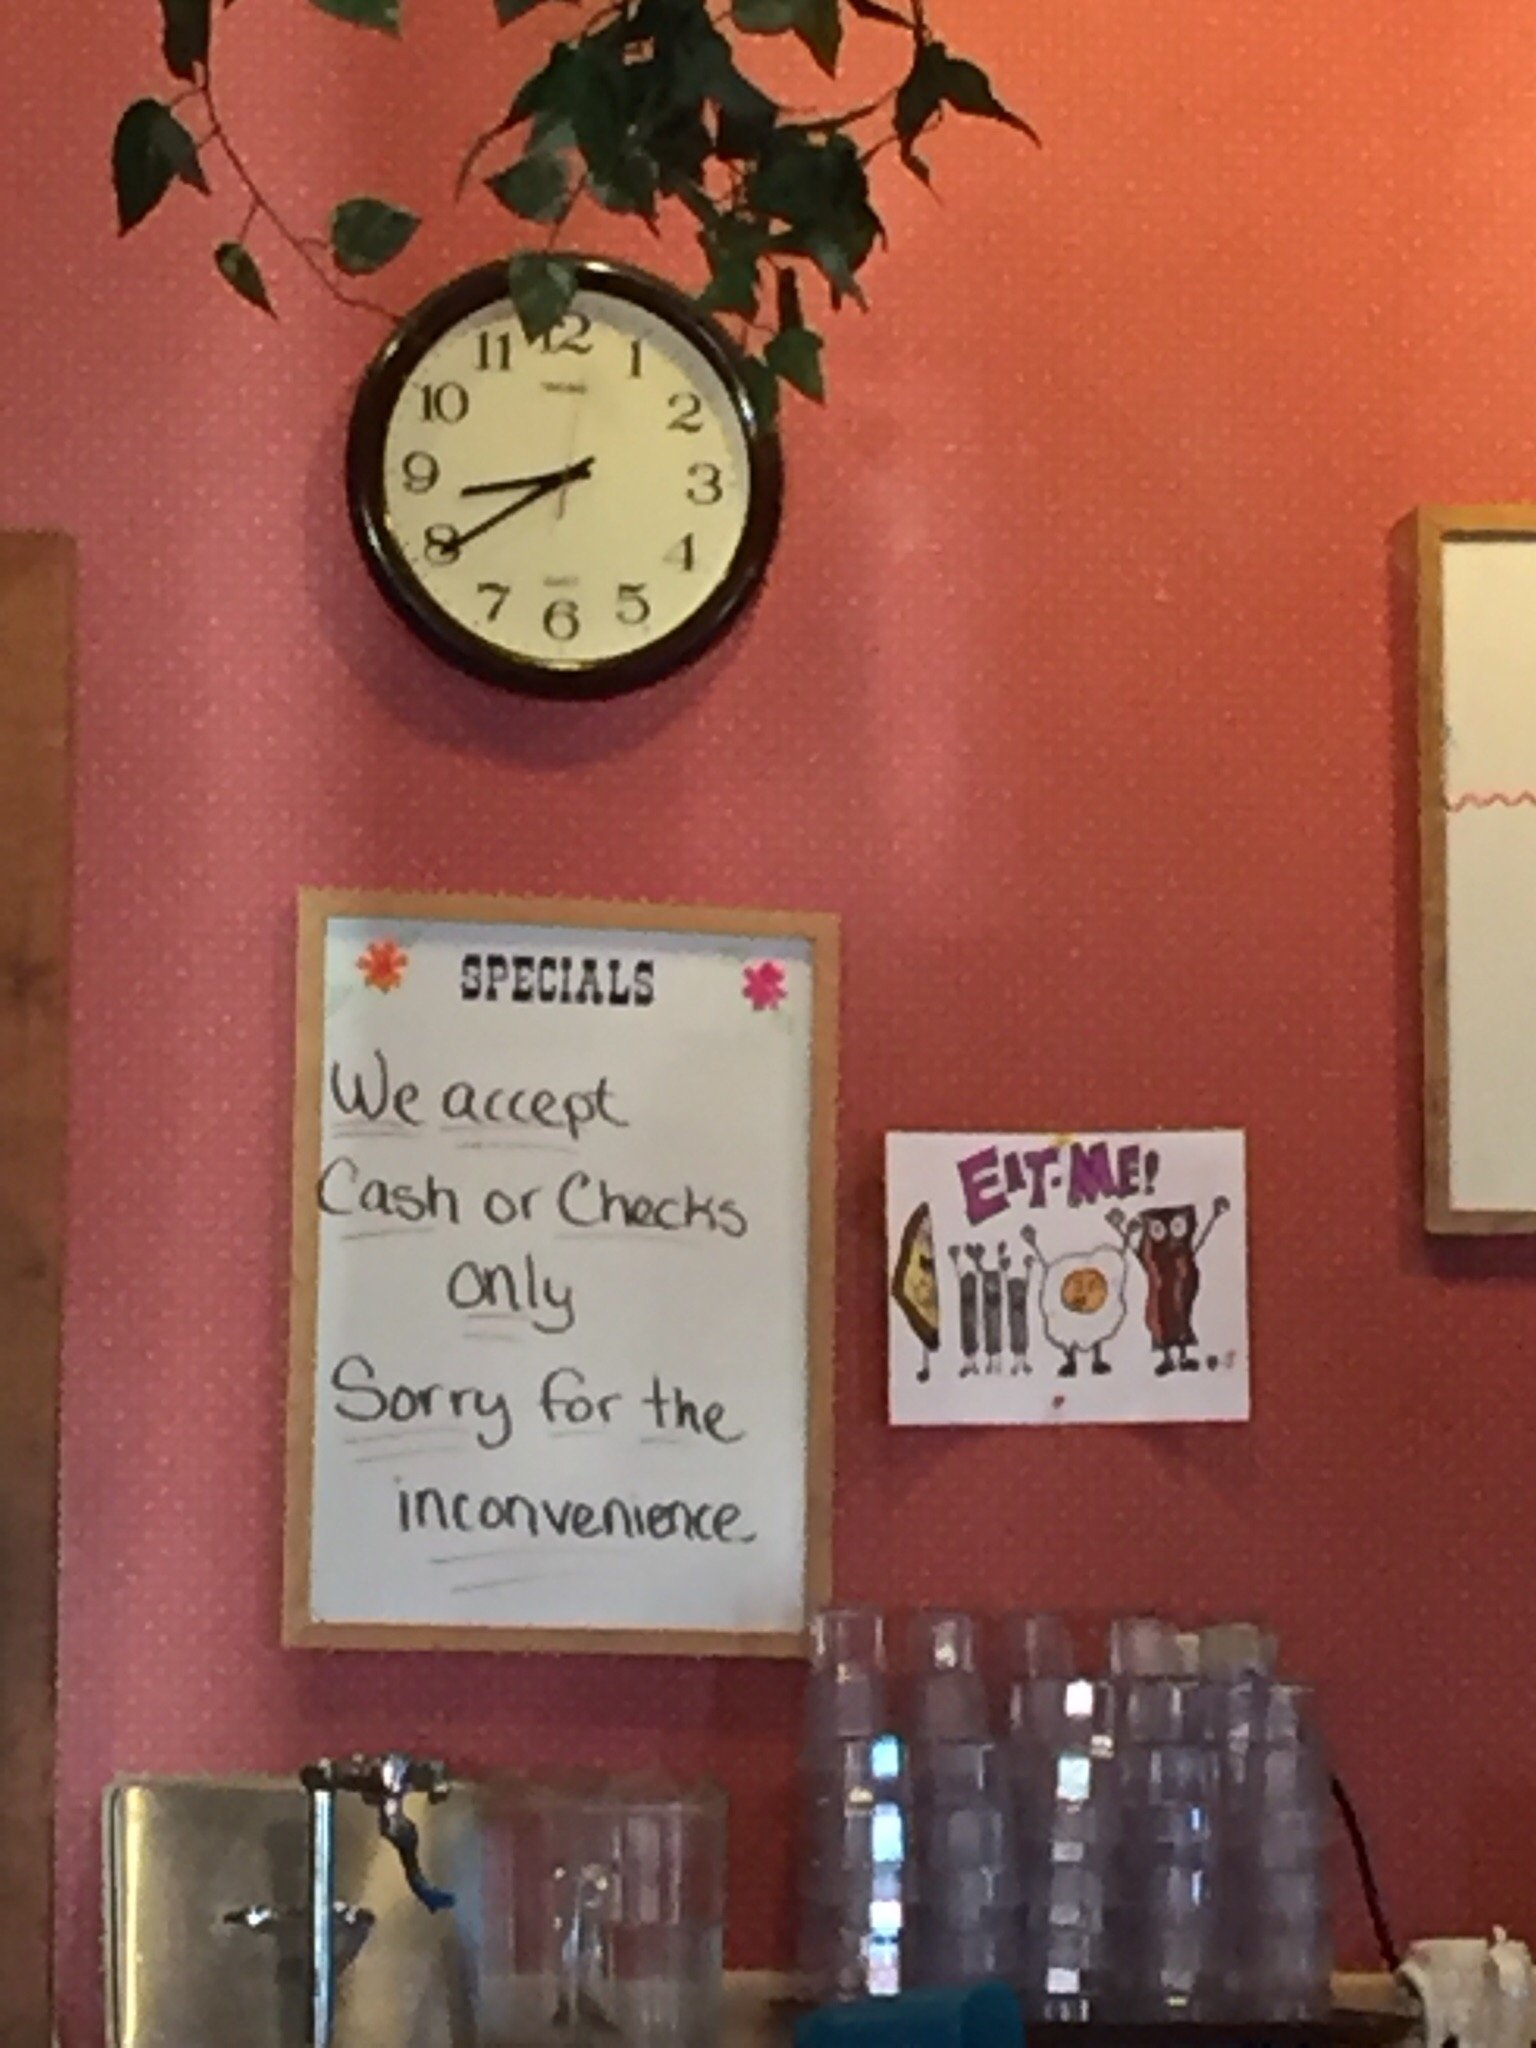 12
11 1
10 2
9 3
8 4
7 5
6
SPECIALS
We accept
Cash or Checks
only
Sorry for the
inconvenience
EAT-ME!